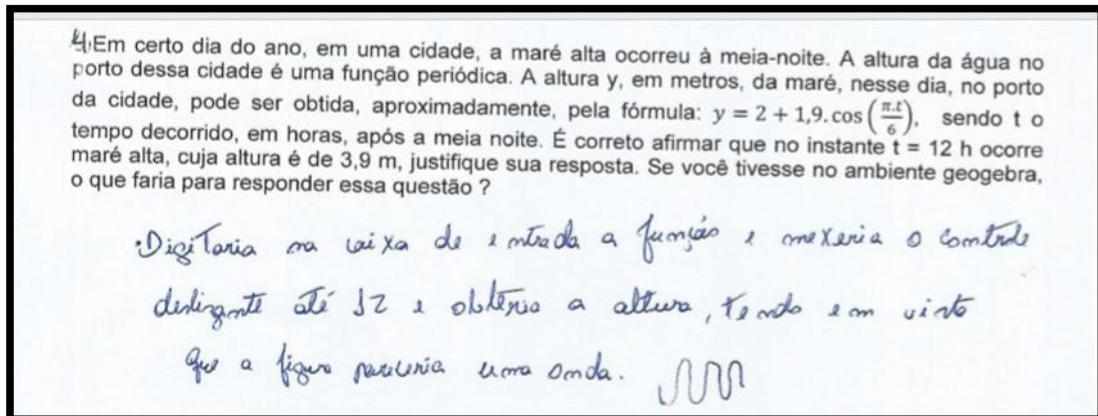 4) Em certo dia do ano, em uma cidade, a maré alta ocorreu à meia-noite. A altura da água no
porto dessa cidade é uma função periódica. A altura y, em metros, da maré, nesse dia, no porto
da cidade, pode ser obtida, aproximadamente, pela fórmula: y = 2 + 1,9. cos (π.t/6), sendo t o
tempo decorrido, em horas, após a meia noite. É correto afirmar que no instante t = 12 h ocorre
maré alta, cuja altura é de 3,9 m, justifique sua resposta. Se você tivesse no ambiente geogebra,
o que faria para responder essa questão ?
Digitaria na caixa de entrada a função e mexeria o controle
deslizante até 12 e obteria a altura, tendo em vista
que a figura pareceria uma onda.